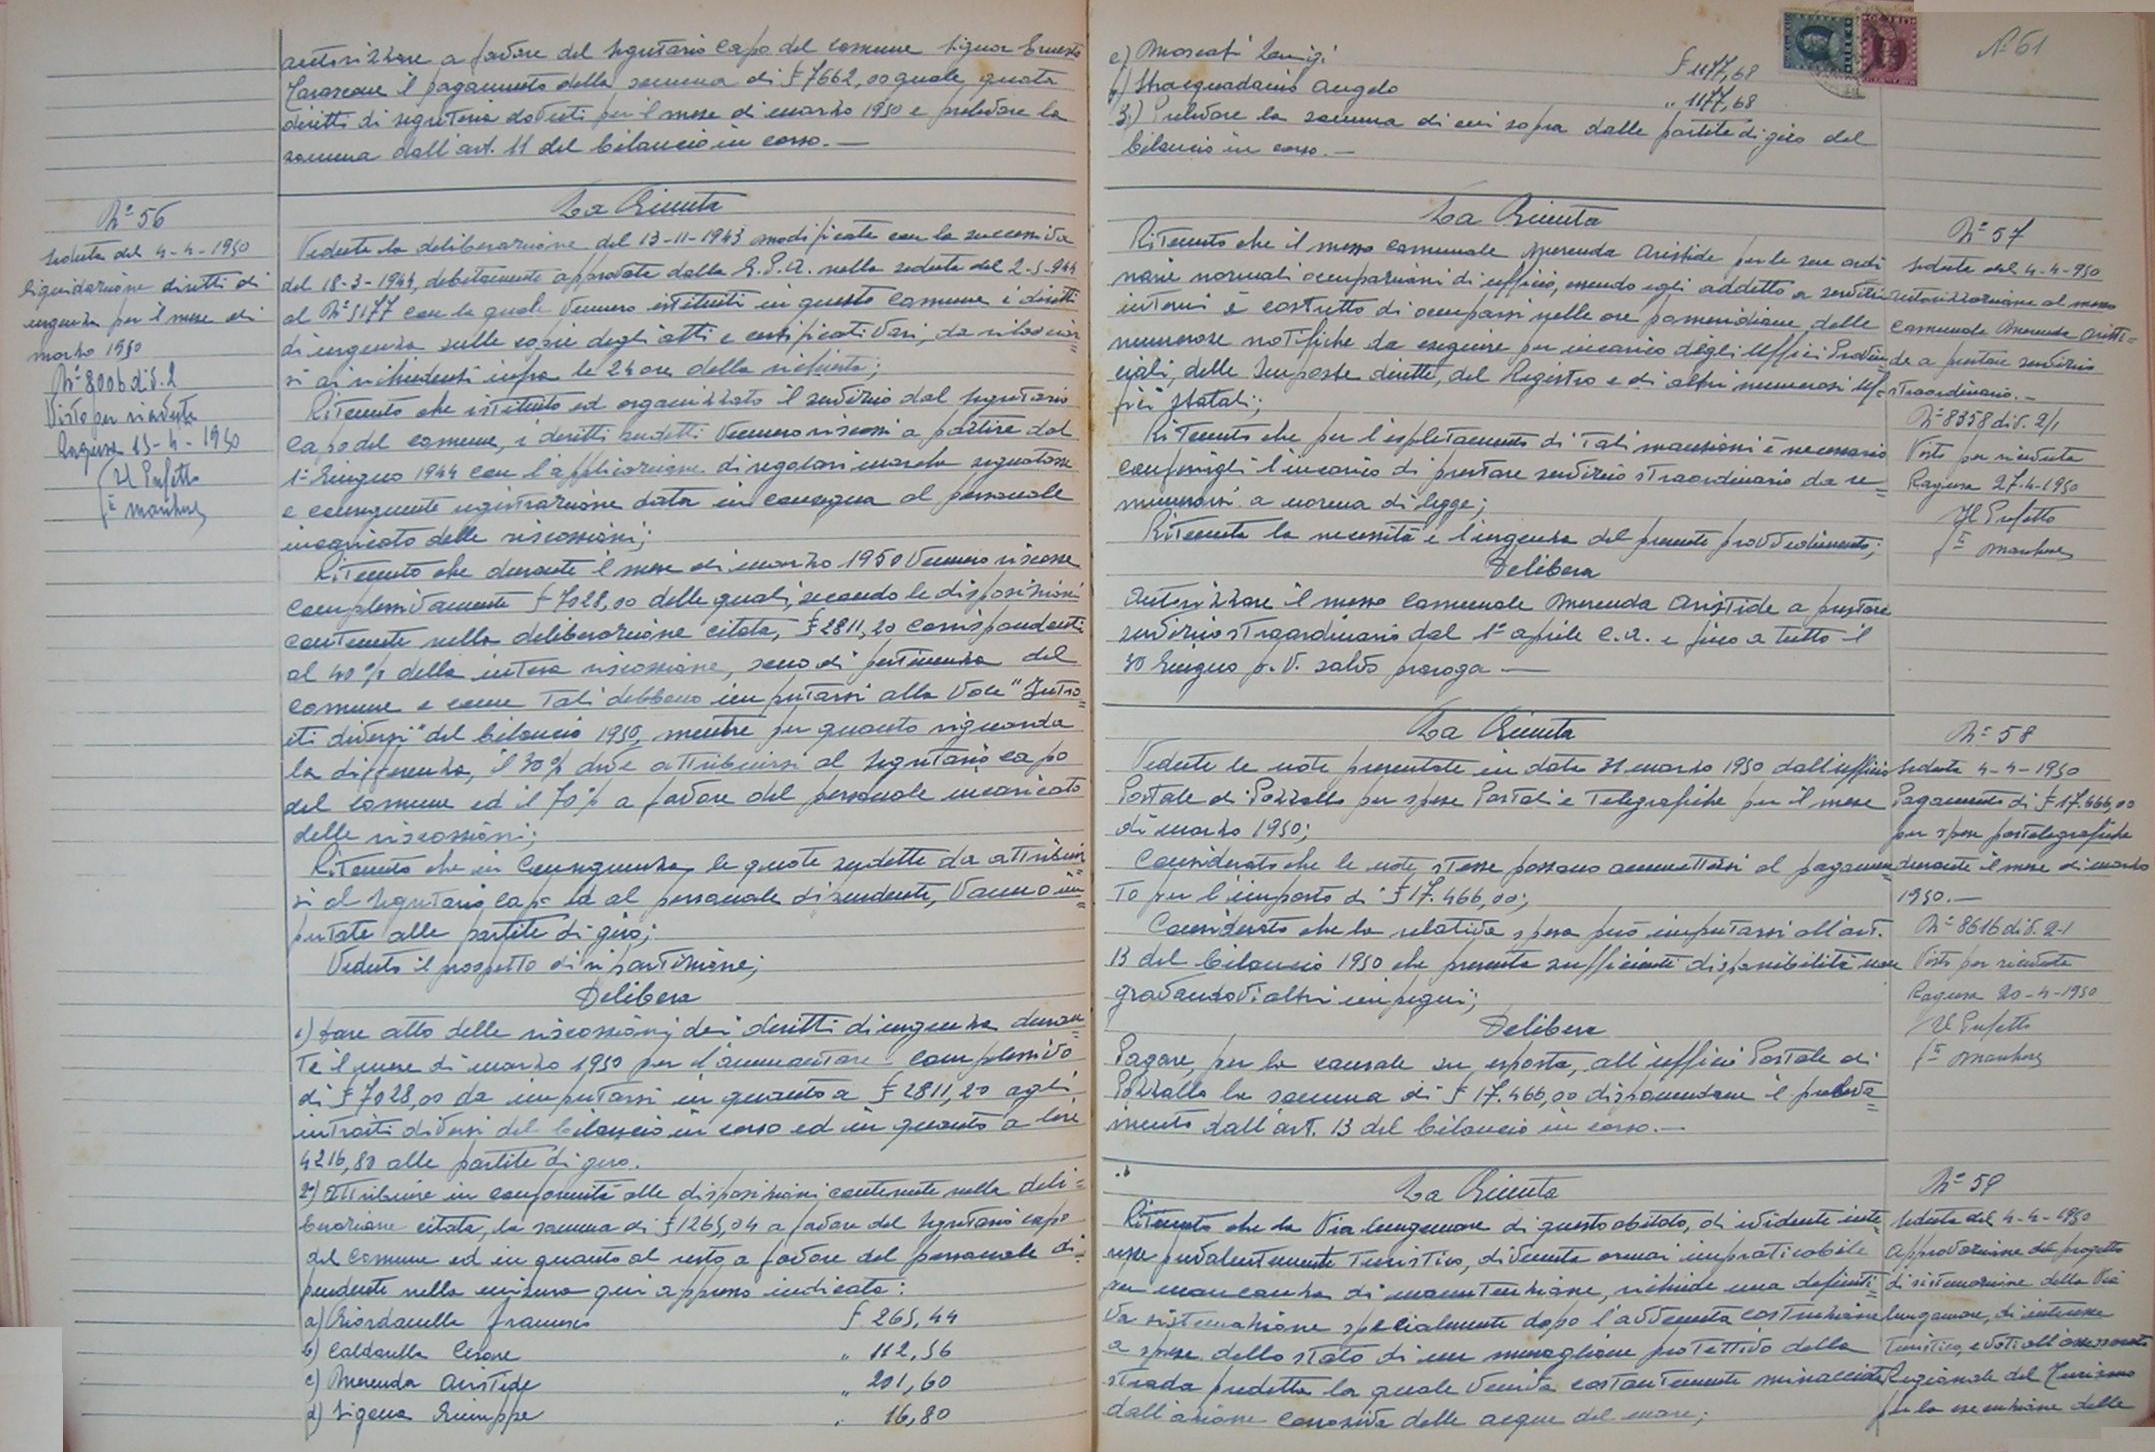 autorizzare a favore del Segretario Capo del comune Signor Ernesto
il pagamento della somma di £ 7662,00 quale quota
diritti di segreteria dovuti per il mese di marzo 1950 e prelevare la
somma dall'art. 11 del bilancio in corso. —
Nº 56
Seduta del 4-4-1950
Liquidazione diritti di
urgenza per il mese di
marzo 1950
Nº 8006 div. 2
Visto per ricevuta
Ragusa 15-4-1950
Il Prefetto
La Giunta
Vedute la deliberazione del 13-11-1943 modificate con la successiva
del 18-3-1944, debitamente approvate dalla G.P.A. nella seduta del 2-5-944
al Nº 5177 con la quale vennero istituiti in questo Comune i diritti
di urgenza sulle copie degli atti e certificati vari, da rilasciar=
si ai richiedenti infra le 24 ore della richiesta;
Ritenuto che istituito ed organizzato il servizio dal Segretario
Capo del comune, i diritti sudetti vennero riscossi a partire dal
1º Giugno 1944 con l'applicazione di regolari marche segnatasse
e conseguente registrazione data in consegna al personale
incaricato delle riscossioni;
Ritenuto che durante il mese di marzo 1950 vennero riscosse
complessivamente £ 7028,00 delle quali, secondo le disposizioni
contenute nella deliberazione citata, £ 2811,20 corrispondenti
al 40% della intera riscossione, sono di pertinenza del
comune e come tali debbono imputarsi alla voce "Intro=
iti diversi" del bilancio 1950, mentre per quanto riguarda
la differenza, il 30% deve attribuirsi al Segretario capo
del comune ed il 70% a favore del personale incaricato
delle riscossioni;
Ritenuto che in conseguenza le quote sudette da attribuir=
si al Segretario Capo ed al personale dipendente, vanno im=
putate alle partite di giro;
Veduto il prospetto di ripartizione;
Delibera
1) Dare atto delle riscossioni dei diritti di urgenza duran=
te il mese di marzo 1950 per l'ammontare complessivo
di £ 7028,00 da imputarsi in quanto a £ 2811,20 agli
introiti diversi del bilancio in corso ed in quanto a lire
4216,80 alle partite di giro.
2) Attribuire in conformità alle disposizioni contenute nella deli=
berazione citata, la somma di £ 1265,04 a favore del Segretario capo
del Comune ed in quanto al resto a favore del personale di=
pendente nella misura qui appresso indicata:
a) Giordanella Francesco £ 265,44
b) Caldarella Cesare " 112,56
c) Merenda Aristide " 201,60
d) Sigona Giuseppe " 16,80
Nº 61
e) Moscati Luigi £ 1177,68
f) Stracquadanio Angelo " 1177,68
3) Prelevare la somma di cui sopra dalle partite di giro del
bilancio in corso. —
La Giunta
Ritenuto che il messo comunale Merenda Aristide per le sue ordi
narie normali occupazioni di ufficio, essendo egli addetto a servizi
interni è costretto di occuparsi nelle ore pomeridiane delle
numerose notifiche da eseguire per incarico degli Uffici Provin=
ciali, delle Imposte dirette, del Registro e di altri numerosi Uf=
fici Statali;
Ritenuto che per l'espletamento di tali mansioni è necessario
conferirgli l'incarico di prestare servizio straordinario da re=
munerarsi a norma di legge;
Ritenuta la necessità e l'urgenza del presente provvedimento;
Delibera
Autorizzare il messo Comunale Merenda Aristide a prestare
servizio straordinario dal 1º aprile c.a. e fino a tutto il
30 Giugno p.v. salvo proroga —
Nº 57
Seduta del 4-4-950
Autorizzazione al messo
Comunale Merenda Aristi=
de a prestare servizio
straordinario. —
Nº 8358 div. 2/1
Visto per ricevuta
Ragusa 27-4-1950
Il Prefetto
La Giunta
Vedute le note presentate in data 31 marzo 1950 dall'ufficio
Postale di Pozzallo per spese Postali e Telegrafiche per il mese
di marzo 1950;
Considerato che le note stesse possono ammettersi al pagamen=
to per l'importo di £ 17.466,00;
Considerato che la relativa spesa può imputarsi all'art.
13 del bilancio 1950 che presenta sufficiente disponibilità non
gravandovi altri impegni;
Delibera
Pagare, per la causale su esposta, all'ufficio Postale di
Pozzallo la somma di £ 17.466,00 disponendone il preleva=
mento dall'art. 13 del bilancio in corso. —
Nº 58
Seduta 4-4-1950
Pagamento di £ 17.466,00
per spese postelegrafiche
durante il mese di marzo
1950. —
Nº 8616 div. 2-1
Visto per ricevuta
Ragusa 20-4-1950
Il Prefetto
La Giunta
Ritenuto che la Via lungomare di questo abitato, di evidente inte=
resse prevalentemente turistico, divenuta ormai impraticabile
per mancanza di manutenzione, richiede una definiti=
va sistemazione specialmente dopo l'avvenuta costruzione
a spese dello stato di un muraglione protettivo della
strada predetta la quale veniva costantemente minacciata
dall'azione corrosiva delle acque del mare;
Nº 59
Seduta del 4-4-1950
Approvazione del progetto
di sistemazione della Via
lungomare, di interesse
turistico, e voti all'assessorato
Regionale del Turismo
per la esecuzione delle